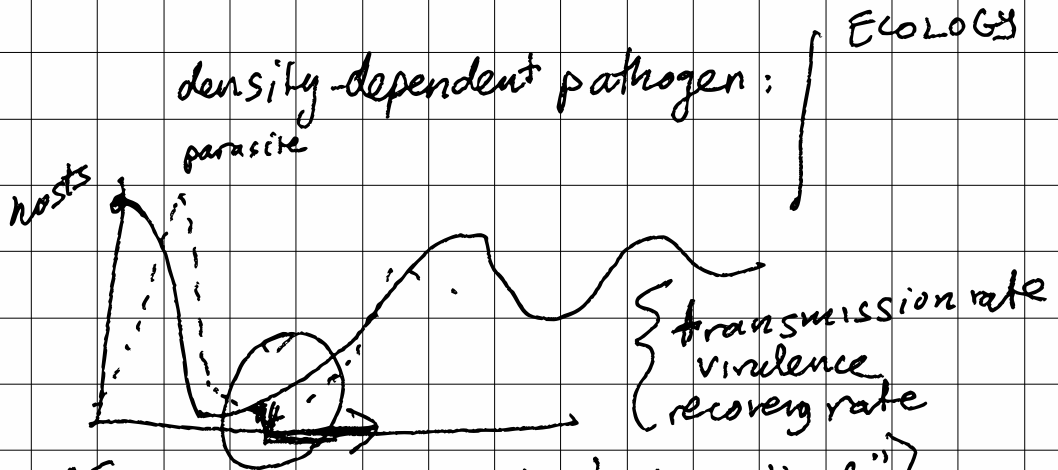 ECOLOGY
density-dependent pathogen:
parasite
hosts
transmission rate
virulence
recovery rate